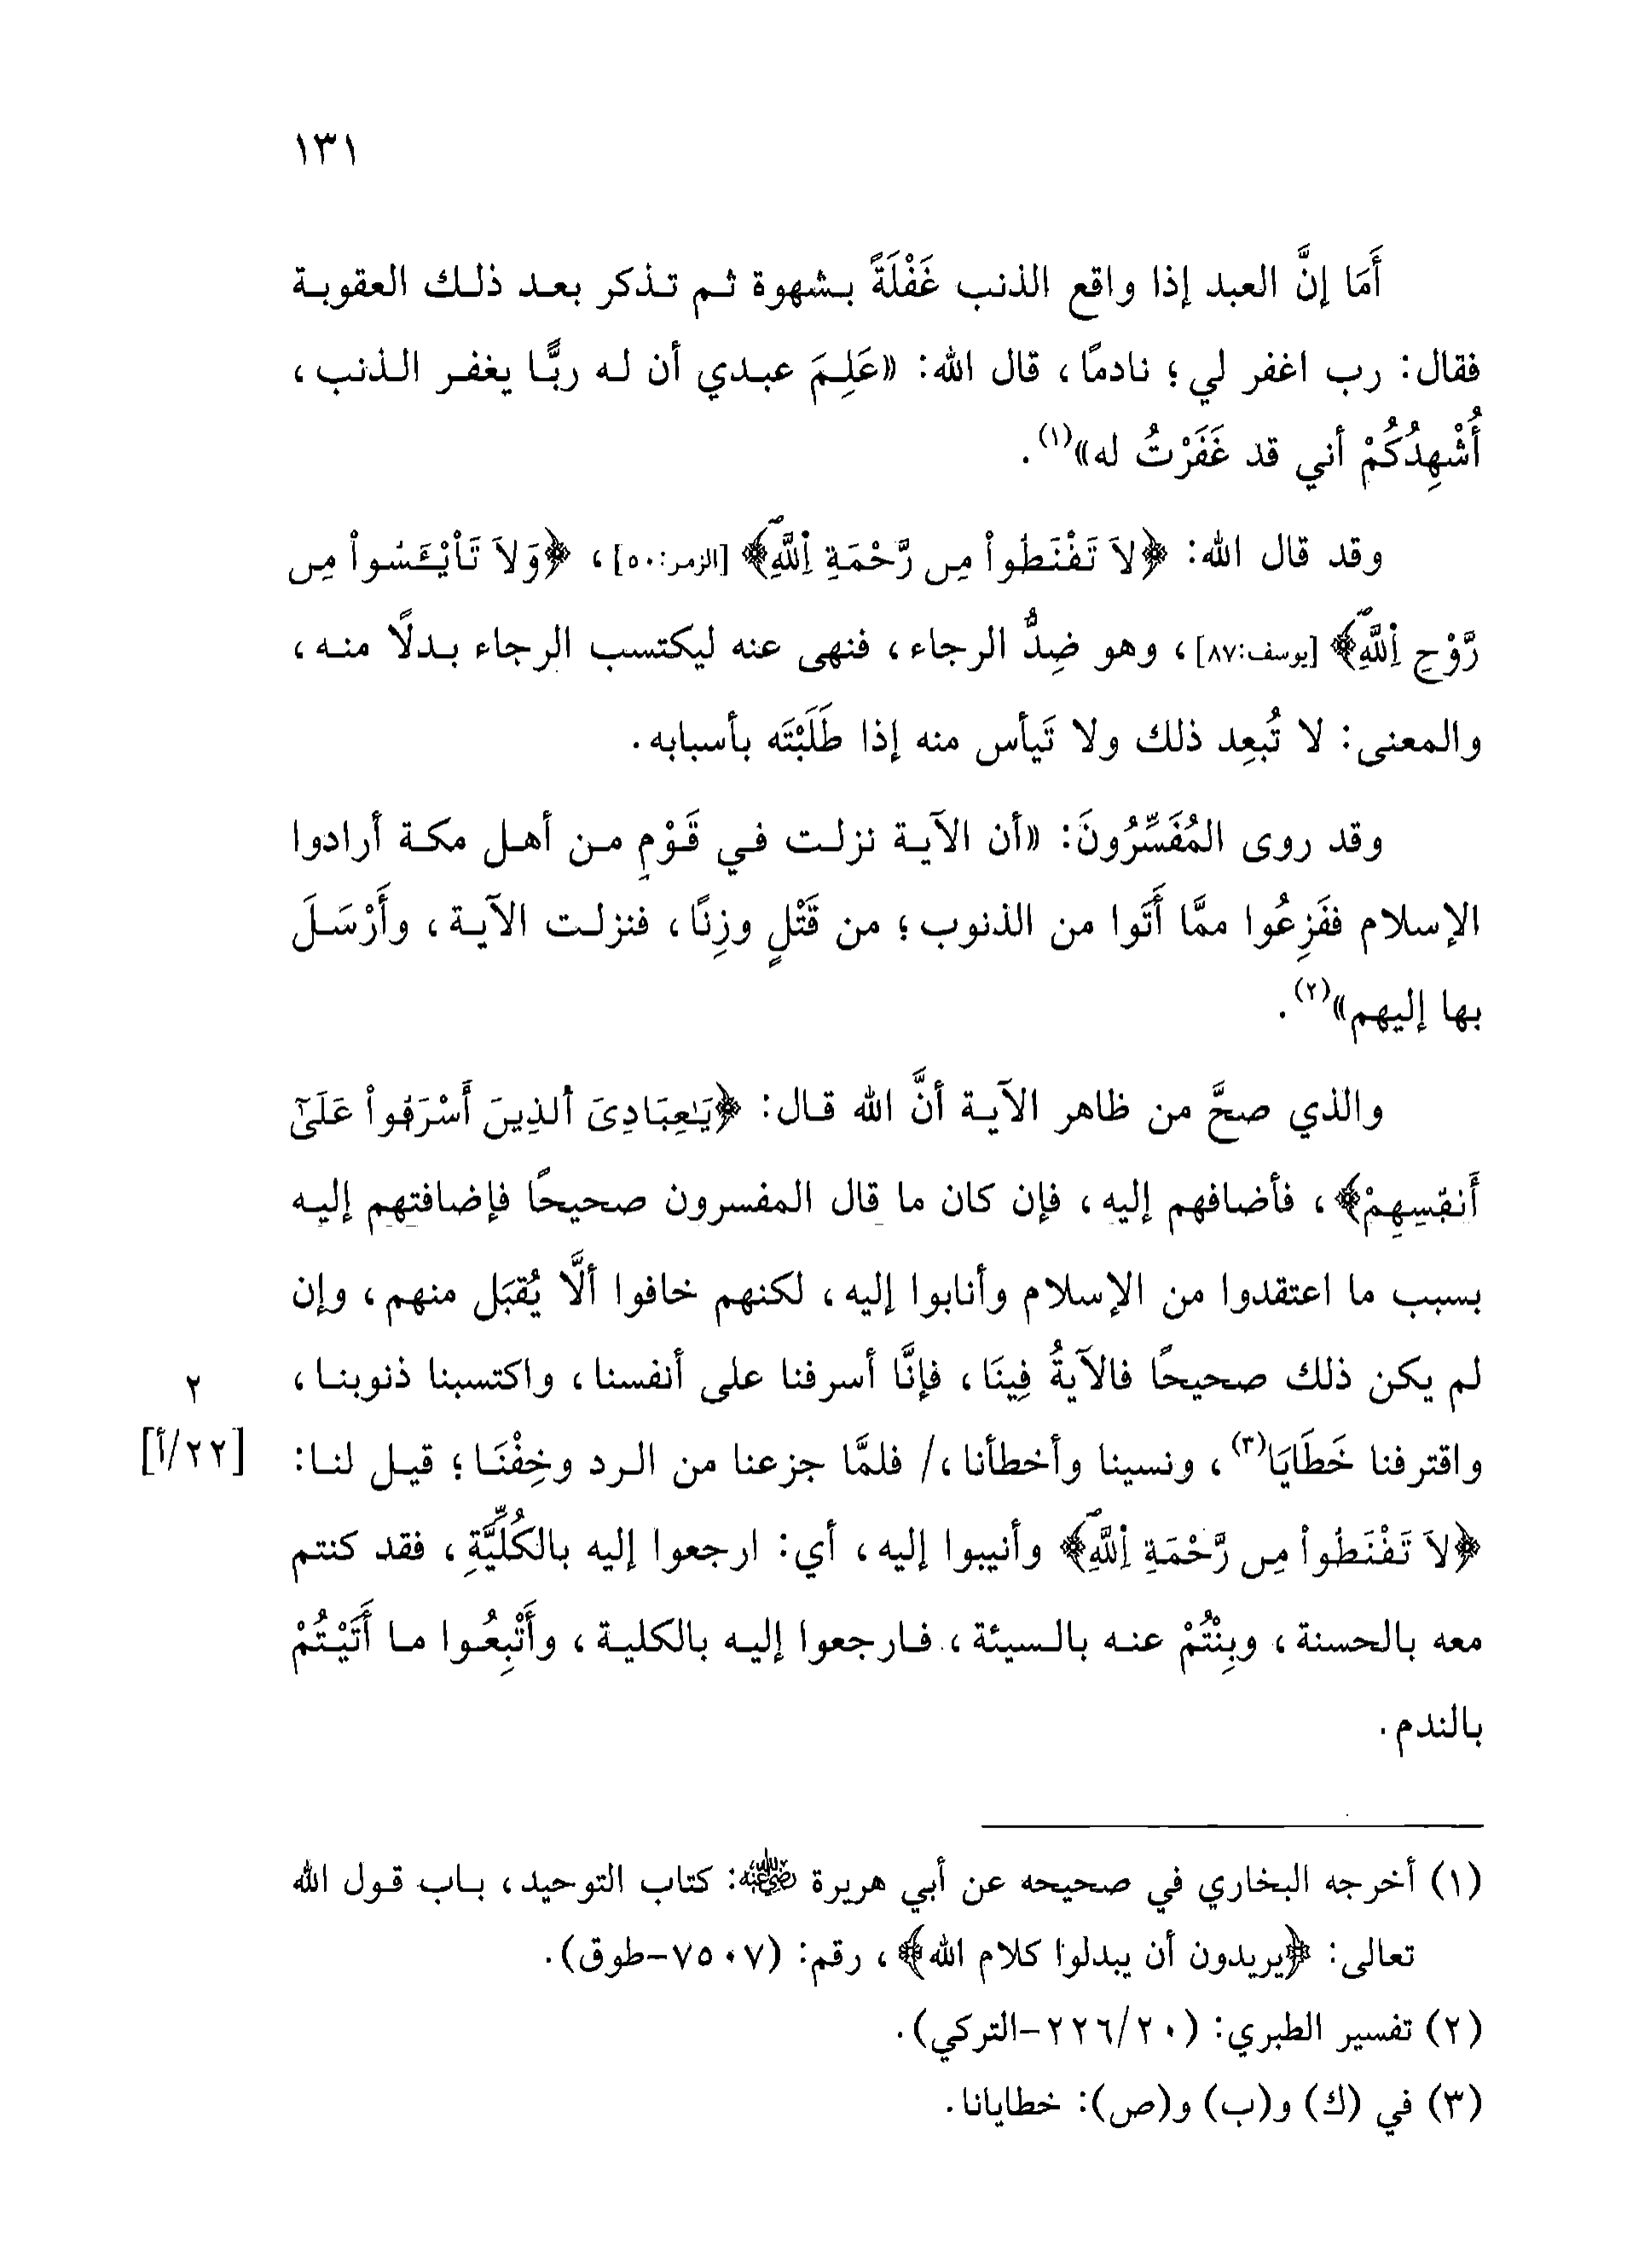 ١٣١
أَمَا إنَّ العبد إذا واقع الذنب غَفْلَةً بشهوة ثم تذكر بعد ذلك العقوبة
فقال: رب اغفر لي؛ نادمًا، قال الله: «عَلِمَ عبدي أن له ربًّا يغفر الذنب،
أُشْهِدُكُمْ أني قد غَفَرْتُ له»(١).
وقد قال الله: ﴿لاَ تَقْنَطُواْ مِن رَّحْمَةِ اِللَّهِ﴾ [الزمر:٥٠]، ﴿وَلاَ تَاْيْـَٔسُواْ مِن
رَّوْحِ اِللَّهِ﴾ [يوسف:٨٧]، وهو ضِدُّ الرجاء، فنهى عنه ليكتسب الرجاء بدلًا منه،
والمعنى: لا تُبعِد ذلك ولا تَيأس منه إذا طَلَبْتَه بأسبابه.
وقد روى المُفَسِّرُونَ: «أن الآية نزلت في قَوْمٍ من أهل مكة أرادوا
الإسلام ففَزِعُوا ممَّا أَتَوا من الذنوب؛ من قَتْلٍ وزِنًا، فنزلت الآية، وأَرْسَلَ
بها إليهم»(٢).
والذي صحَّ من ظاهر الآية أنَّ الله قال: ﴿يَٰعِبَادِىَ اَ۬لذِينَ أَسْرَفُواْ عَلَىٰٓ
أَنفُسِهِمْ﴾، فأضافهم إليه، فإن كان ما قال المفسرون صحيحًا فإضافتهم إليه
بسبب ما اعتقدوا من الإسلام وأنابوا إليه، لكنهم خافوا ألَّا يُقبَل منهم، وإن
لم يكن ذلك صحيحًا فالآيةُ فِينَا، فإنَّا أسرفنا على أنفسنا، واكتسبنا ذنوبنا،
٢
واقترفنا خَطَايَا(٣)، ونسينا وأخطأنا،/ فلمَّا جزعنا من الرد وخِفْنَا؛ قيل لنا:
[٢٢/أ]
﴿لاَ تَقْنَطُواْ مِن رَّحْمَةِ اِللَّهِ﴾ وأنيبوا إليه، أي: ارجعوا إليه بالكُلِّيَّةِ، فقد كنتم
معه بالحسنة، وبِنْتُمْ عنه بالسيئة، فارجعوا إليه بالكلية، وأَتْبِعُوا ما أَتَيْتُمْ
بالندم.
(١) أخرجه البخاري في صحيحه عن أبي هريرة رضي الله عنه: كتاب التوحيد، باب قول الله
تعالى: ﴿يريدون أن يبدلوا كلام الله﴾، رقم: (٧٥٠٧-طوق).
(٢) تفسير الطبري: (٢٢٦/٢٠-التركي).
(٣) في (ك) و(ب) و(ص): خطايانا.